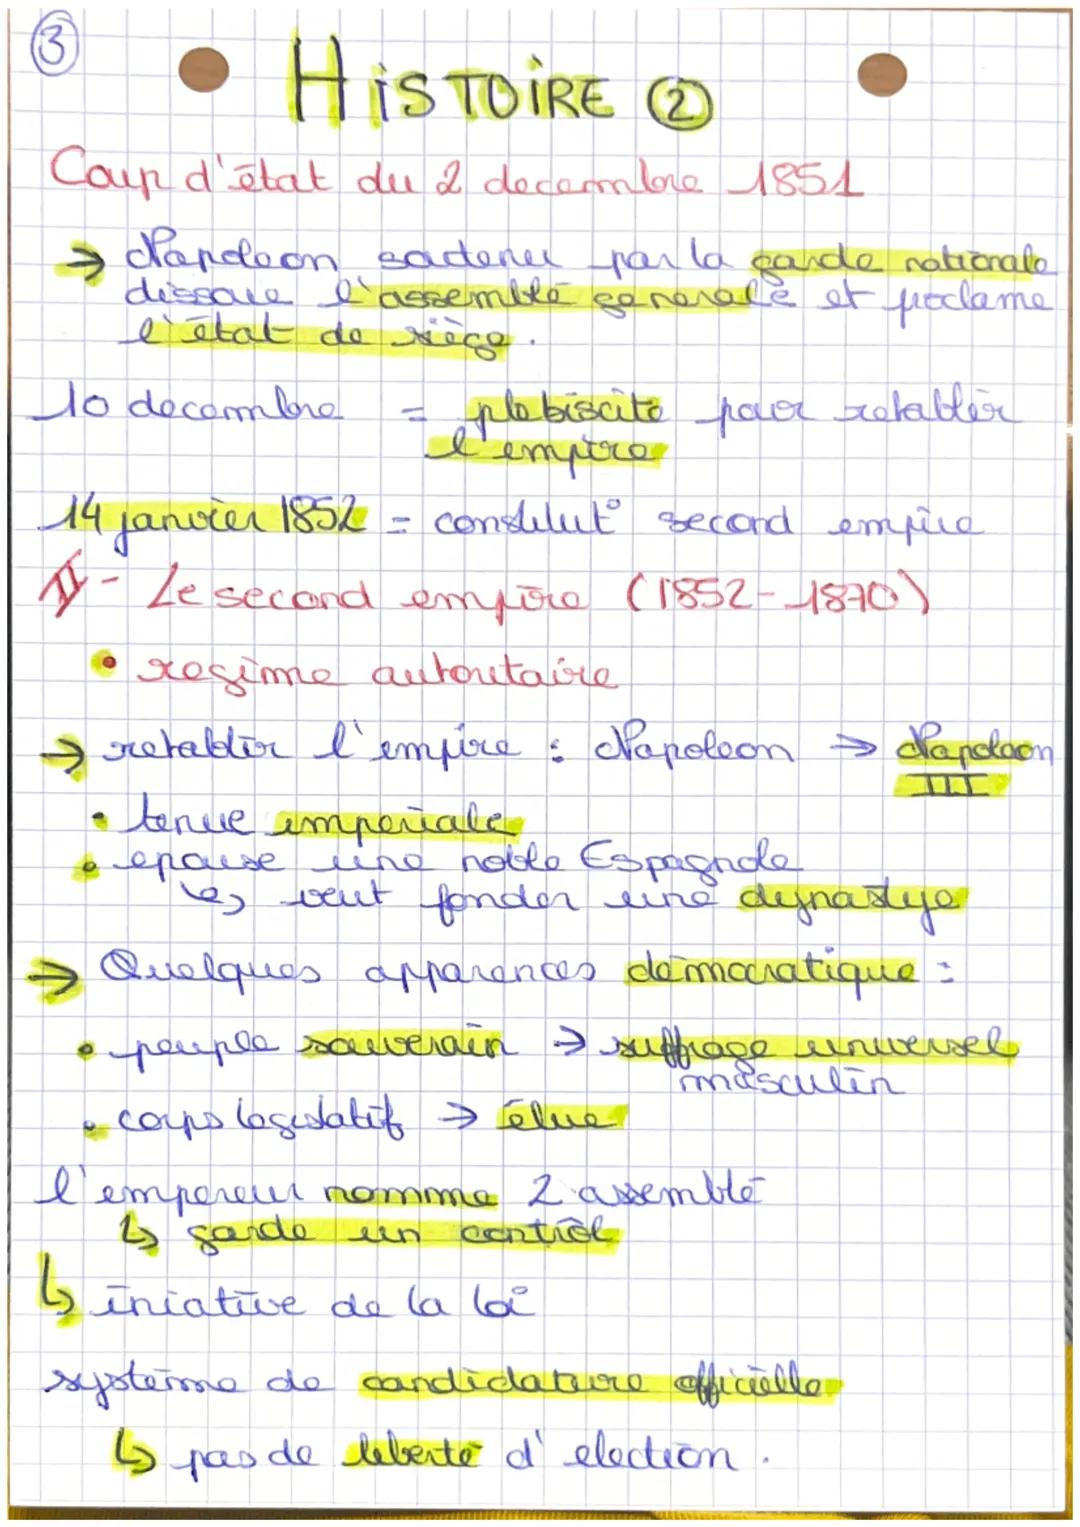 3
HiSTOiRE 2
Coup d'état du 2 decembre 1851
→ Napoleon soutenu par la garde nationale
dissoue l'assemblé generale et proclame
l'état de siège.
10 decembre = plebiscite pour retablir
l'empire
14 janvier 1852 = constitut° second empire
II - Le second empire (1852-1870)
• regime autoritaire
→ retablir l'empire : Napoleon → Napoleon
III
• tenue imperiale
• epouse une noble Espagnole
↳ veut fonder une dynastye
→ Quelques apparences démocratique :
• peuple souverain → suffrage universel
masculin
• corps legislatif → élue
l'empereur nomme 2 assemblé
↳ garde un contrôl
↳ iniative de la loi
système de candidature officielle
↳ pas de liberté d'election.